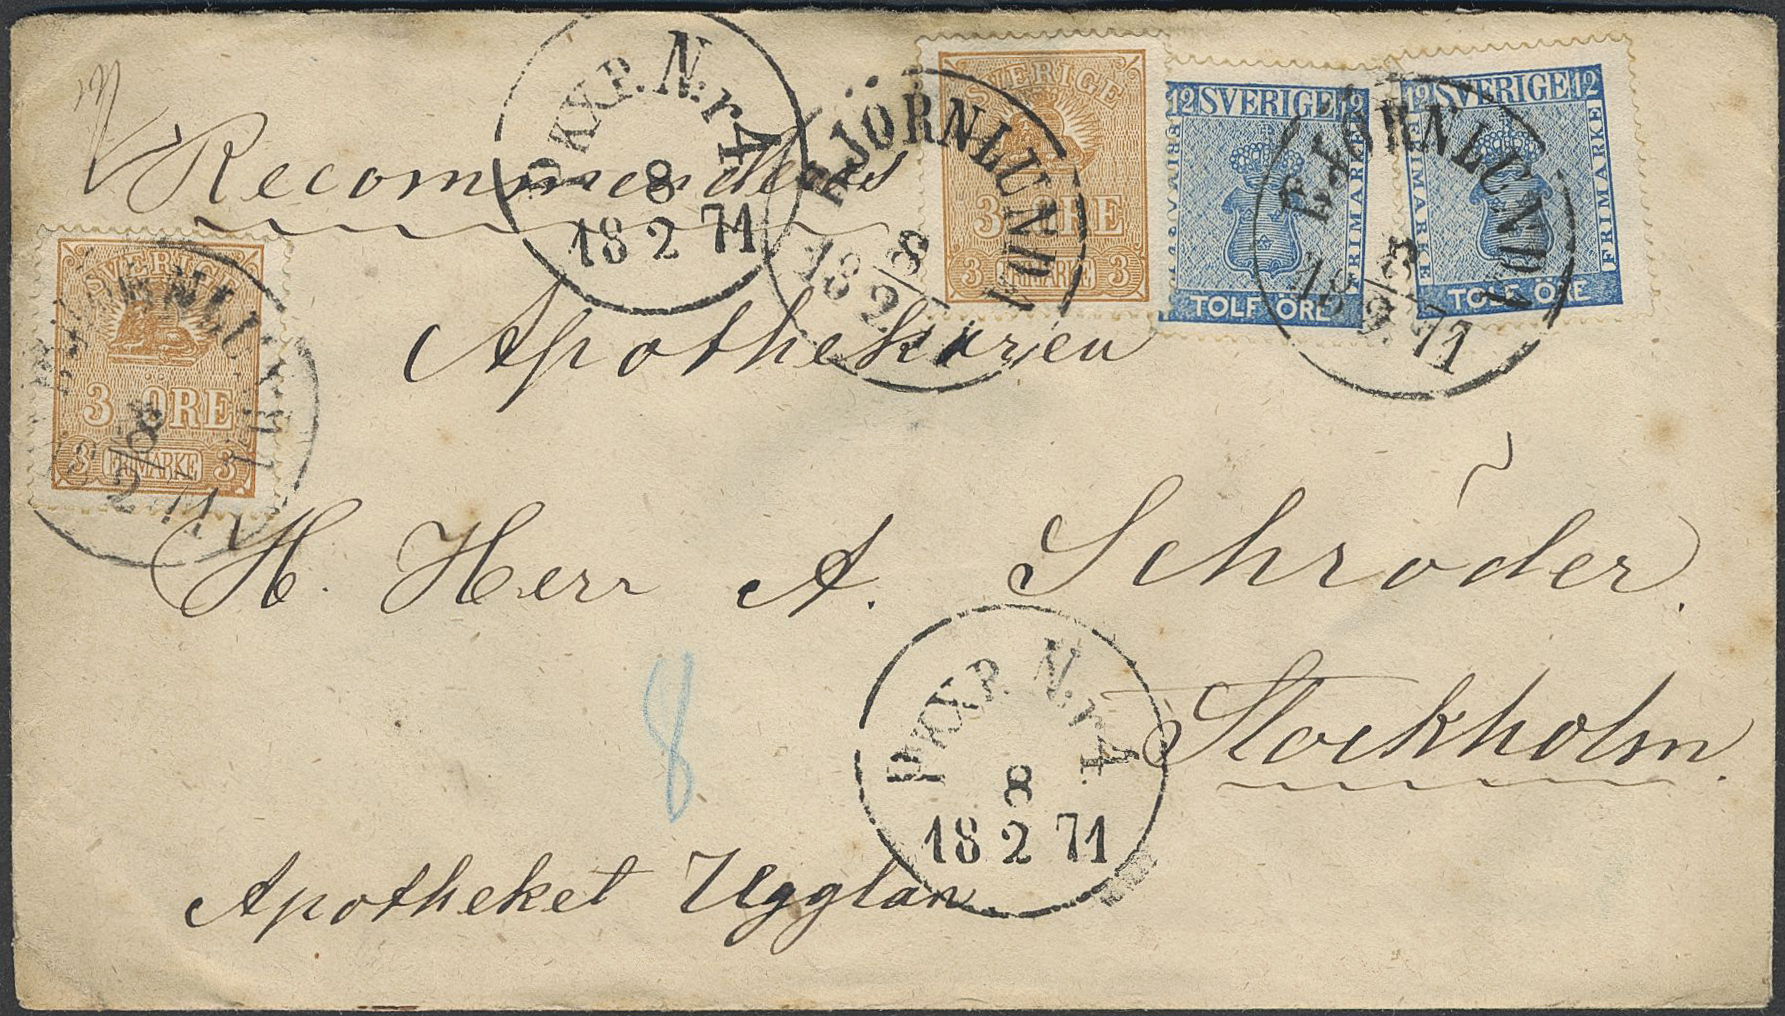 Recommenderas
PKXP. N.r 4
8
18 2 71
BJÖRNLUNDA
8
18 2 71
SVERIGE
3 ÖRE
3 FRIMARKE 3
12 SVERIGE 12
FRIMARKE
TOLF ÖRE
BJÖRNLUNDA
8
18 2 71
12 SVERIGE 12
FRIMARKE
TOLF ÖRE
SVERIGE
3 ÖRE
3 FRIMARKE 3
BJÖRNLUNDA
8
2 71
Apothekaren
H. Herr A. Schröder.
Stockholm.
8
PKXP. N.r 4
8
18 2 71
Apotheket Ugglan